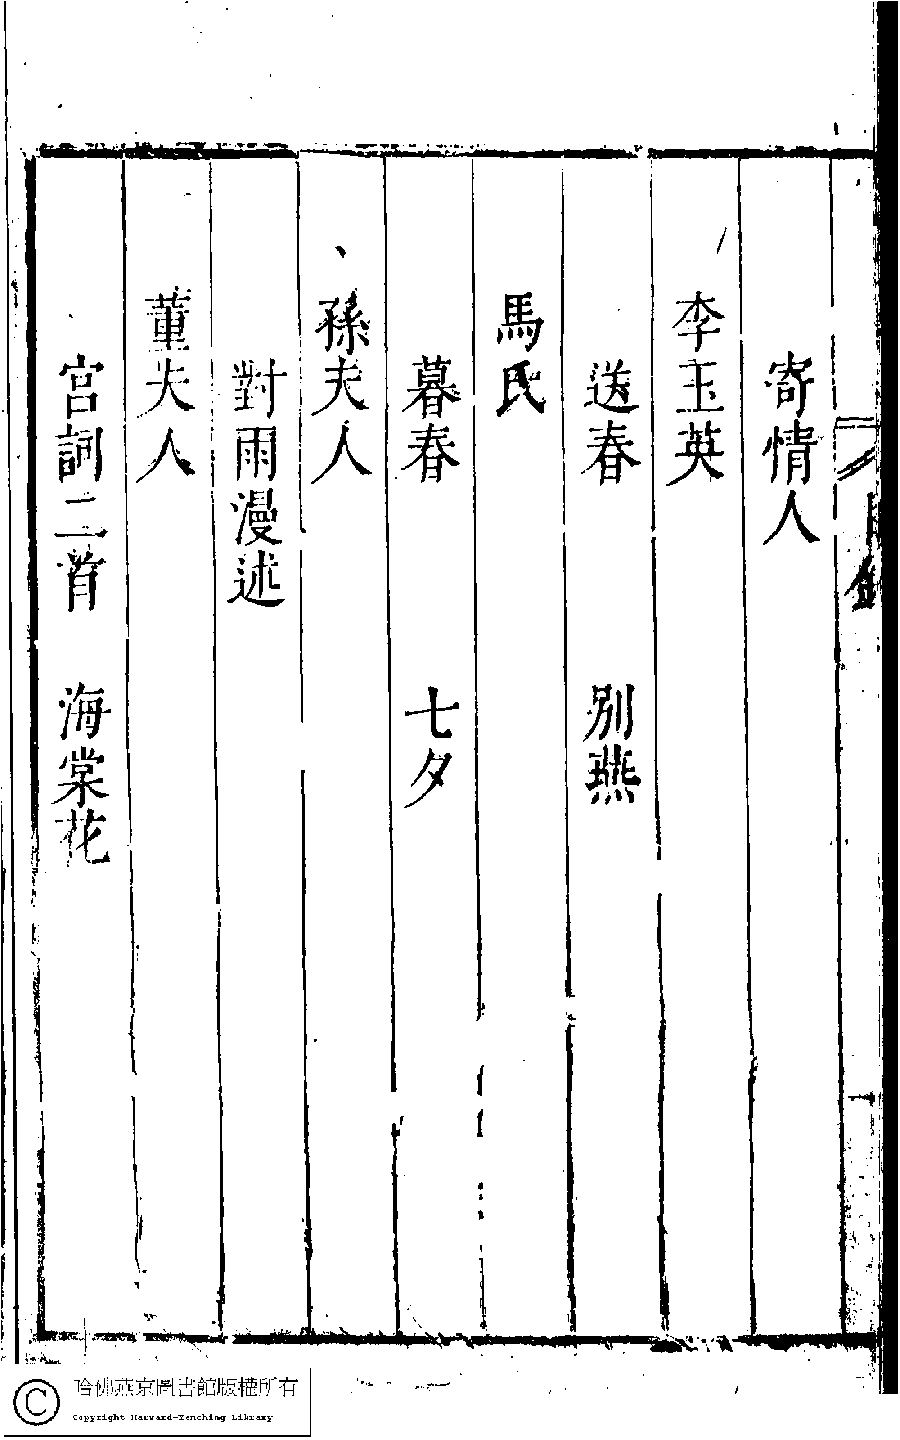 寄情人
李玉英
送春 別燕
馬氏
暮春 七夕
孫夫人
對雨漫述
董夫人
宮詞二首 海棠花
哈佛燕京圖書館版權所有
Copyright Harvard-Yenching Library